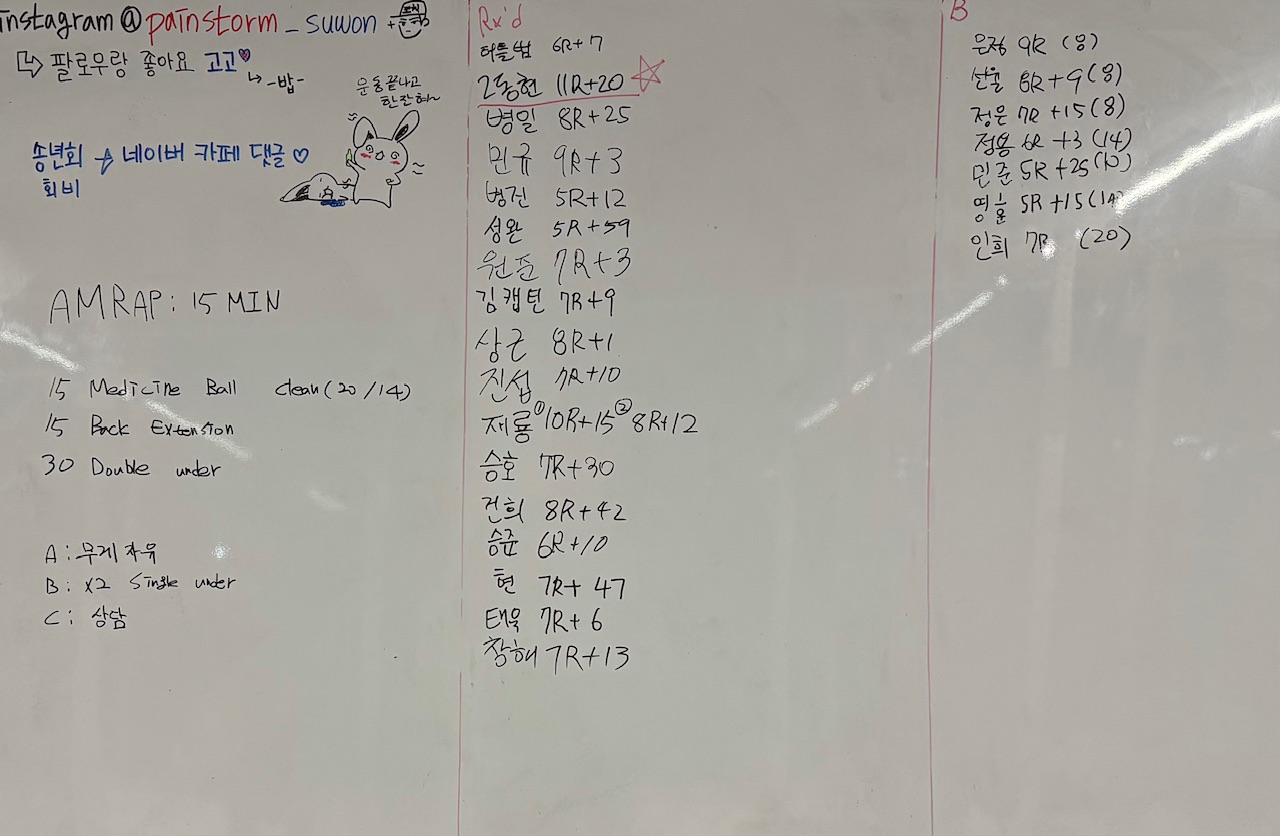 instagram@painstorm_suwon +
↳ 팔로우랑 좋아요 고고♥
↳ -밥-
운동끝나고
한잔혀~
송년회 → 네이버 카페 댓글 ♡
회비
AMRAP: 15 MIN
15 Medicine Ball clean(20/14)
15 Back Extension
30 Double under
A: 무게 자유
B: x2 Single under
C: 상담
Rx'd
6R+7
2동현 11R+20 ☆
병일 8R+25
민규 9R+3
병진 5R+12
성완 5R+59
원준 7R+3
김캡틴 7R+9
상근 8R+1
진섭 7R+10
재룡 ①10R+15 ②8R+12
승호 7R+30
건희 8R+42
승준 6R+10
현 7R+47
태욱 7R+6
창해 7R+13
B
은정 9R (8)
6R+9(8)
정은 7R+15(8)
정용 6R+3(14)
민준 5R+25(10)
영훈 5R+15(14)
인희 7R (20)